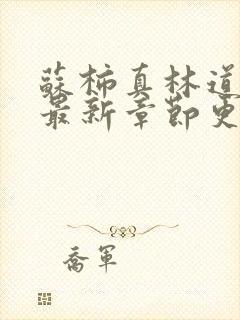 蘇柿真林道
最新章節更
喬軍